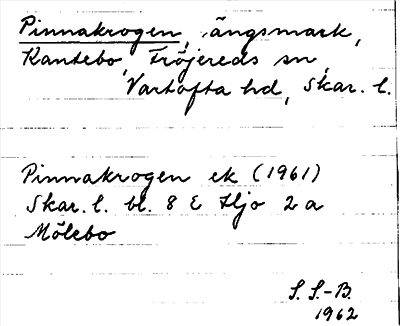 Pinnakrogen, ängsmark,
Kantebo, Fröjereds sn,
Vartofta hd, Skar. l.
Pinnakrogen ek (1961)
Skar. l. bl. 8 E Hjo 2 a
Mölebo
S. S.-B.
1962